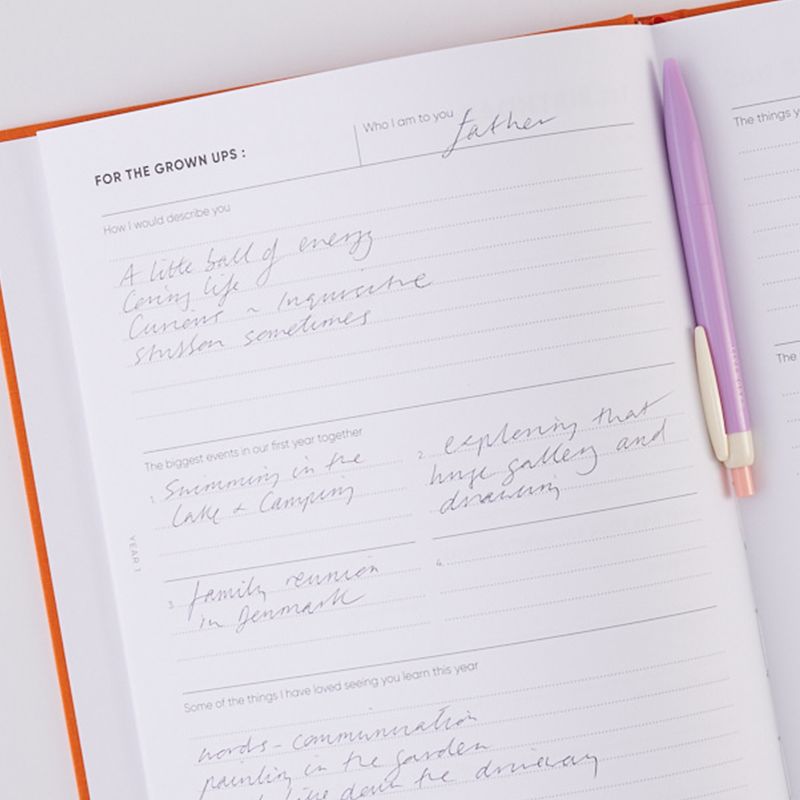 FOR THE GROWN UPS :
Who I am to you
father
How I would describe you
A little ball of energy
Loving life
Curious ~ Inquisitive
stubbon sometimes
The biggest events in our first year together
1. Swimming in the
Lake & Camping
2. exploring that
huge gallery and
drawing
3. family reunion
in Denmark
4.
YEAR 1
Some of the things I have loved seeing you learn this year
words - communication
painting in the garden
down the driveway
The things y
The